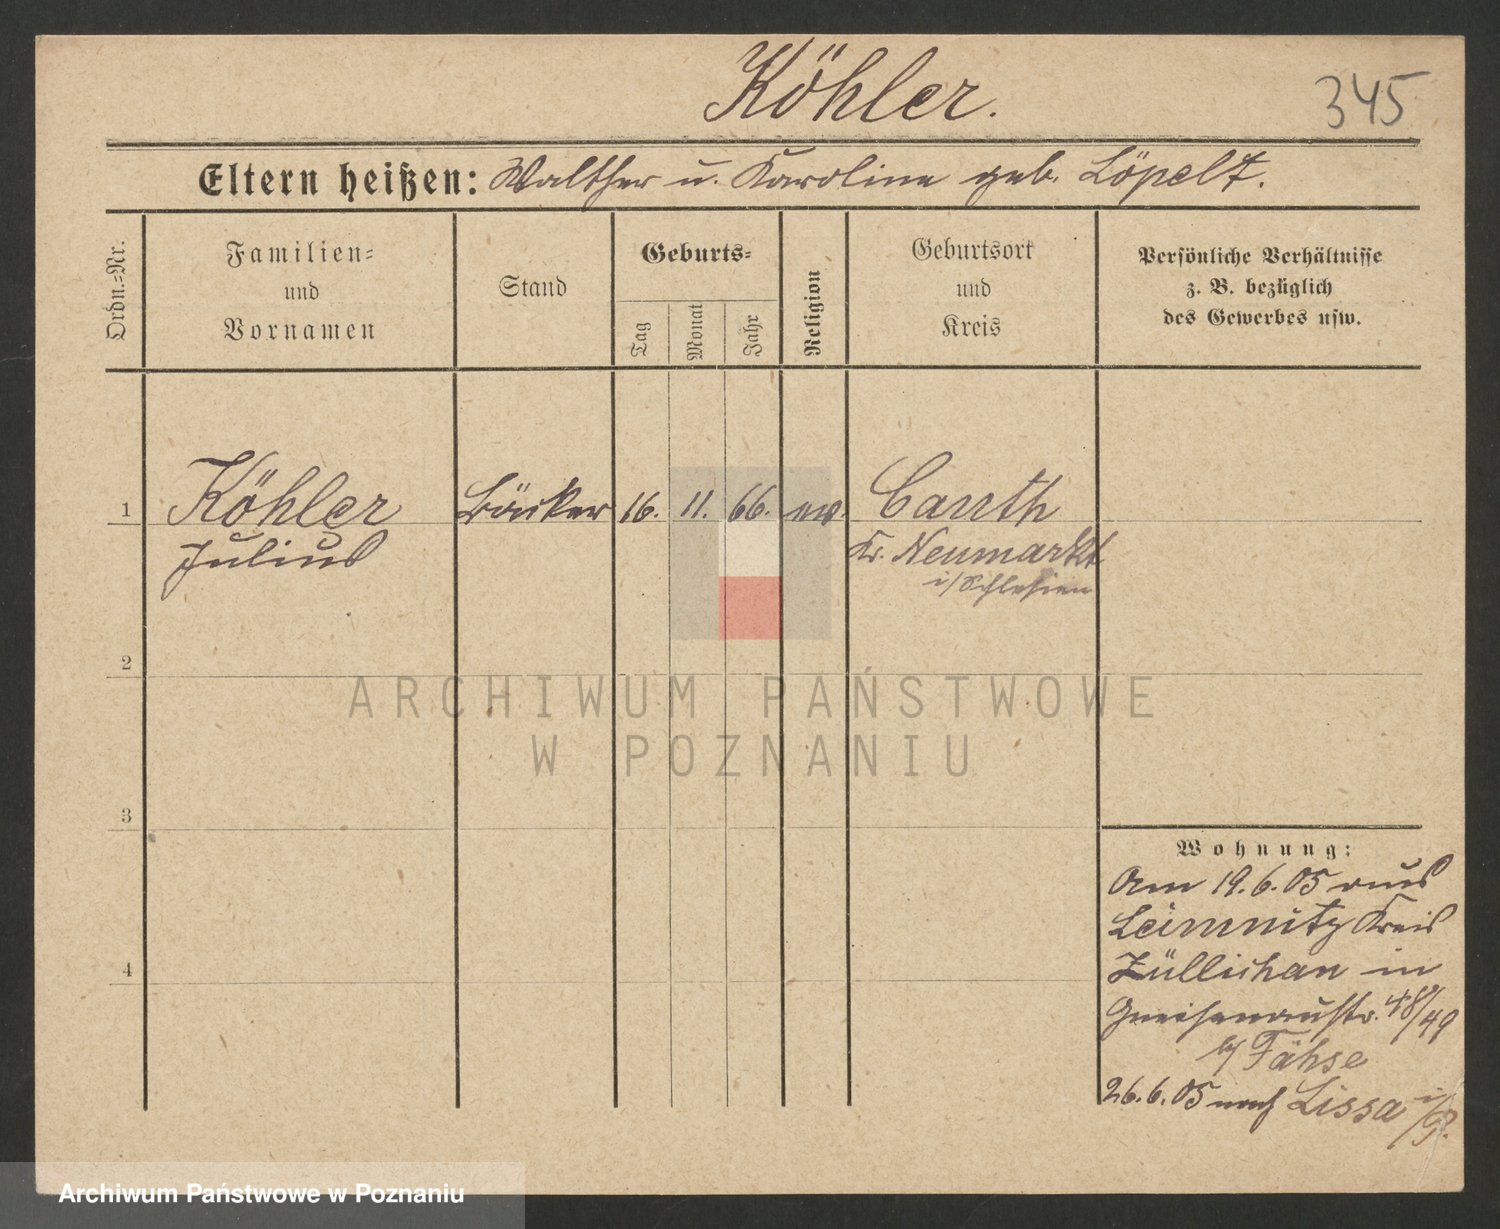 Köhler.
345
Eltern heißen: Walther u. Karolina geb. Löpelt.
Ordn.=Nr.
Familien=
und
Vornamen
Stand
Geburts=
Tag
Monat
Jahr
Religion
Geburtsort
und
Kreis
Persönliche Verhältnisse
z. B. bezüglich
des Gewerbes usw.
1 Köhler Bäcker 16. 11. 66. ev. Canth
Julius Kr. Neumarkt
i/Schlesien
2
ARCHIWUM PAŃSTWOWE
W POZNANIU
3
Wohnung:
Am 19.6.05 aus
Leimnitz Kreis
4 Züllichau in
Gneisenaustr. 48/49
b/ Fähse
26.6.05 nach Lissa i/P.
Archiwum Państwowe w Poznaniu